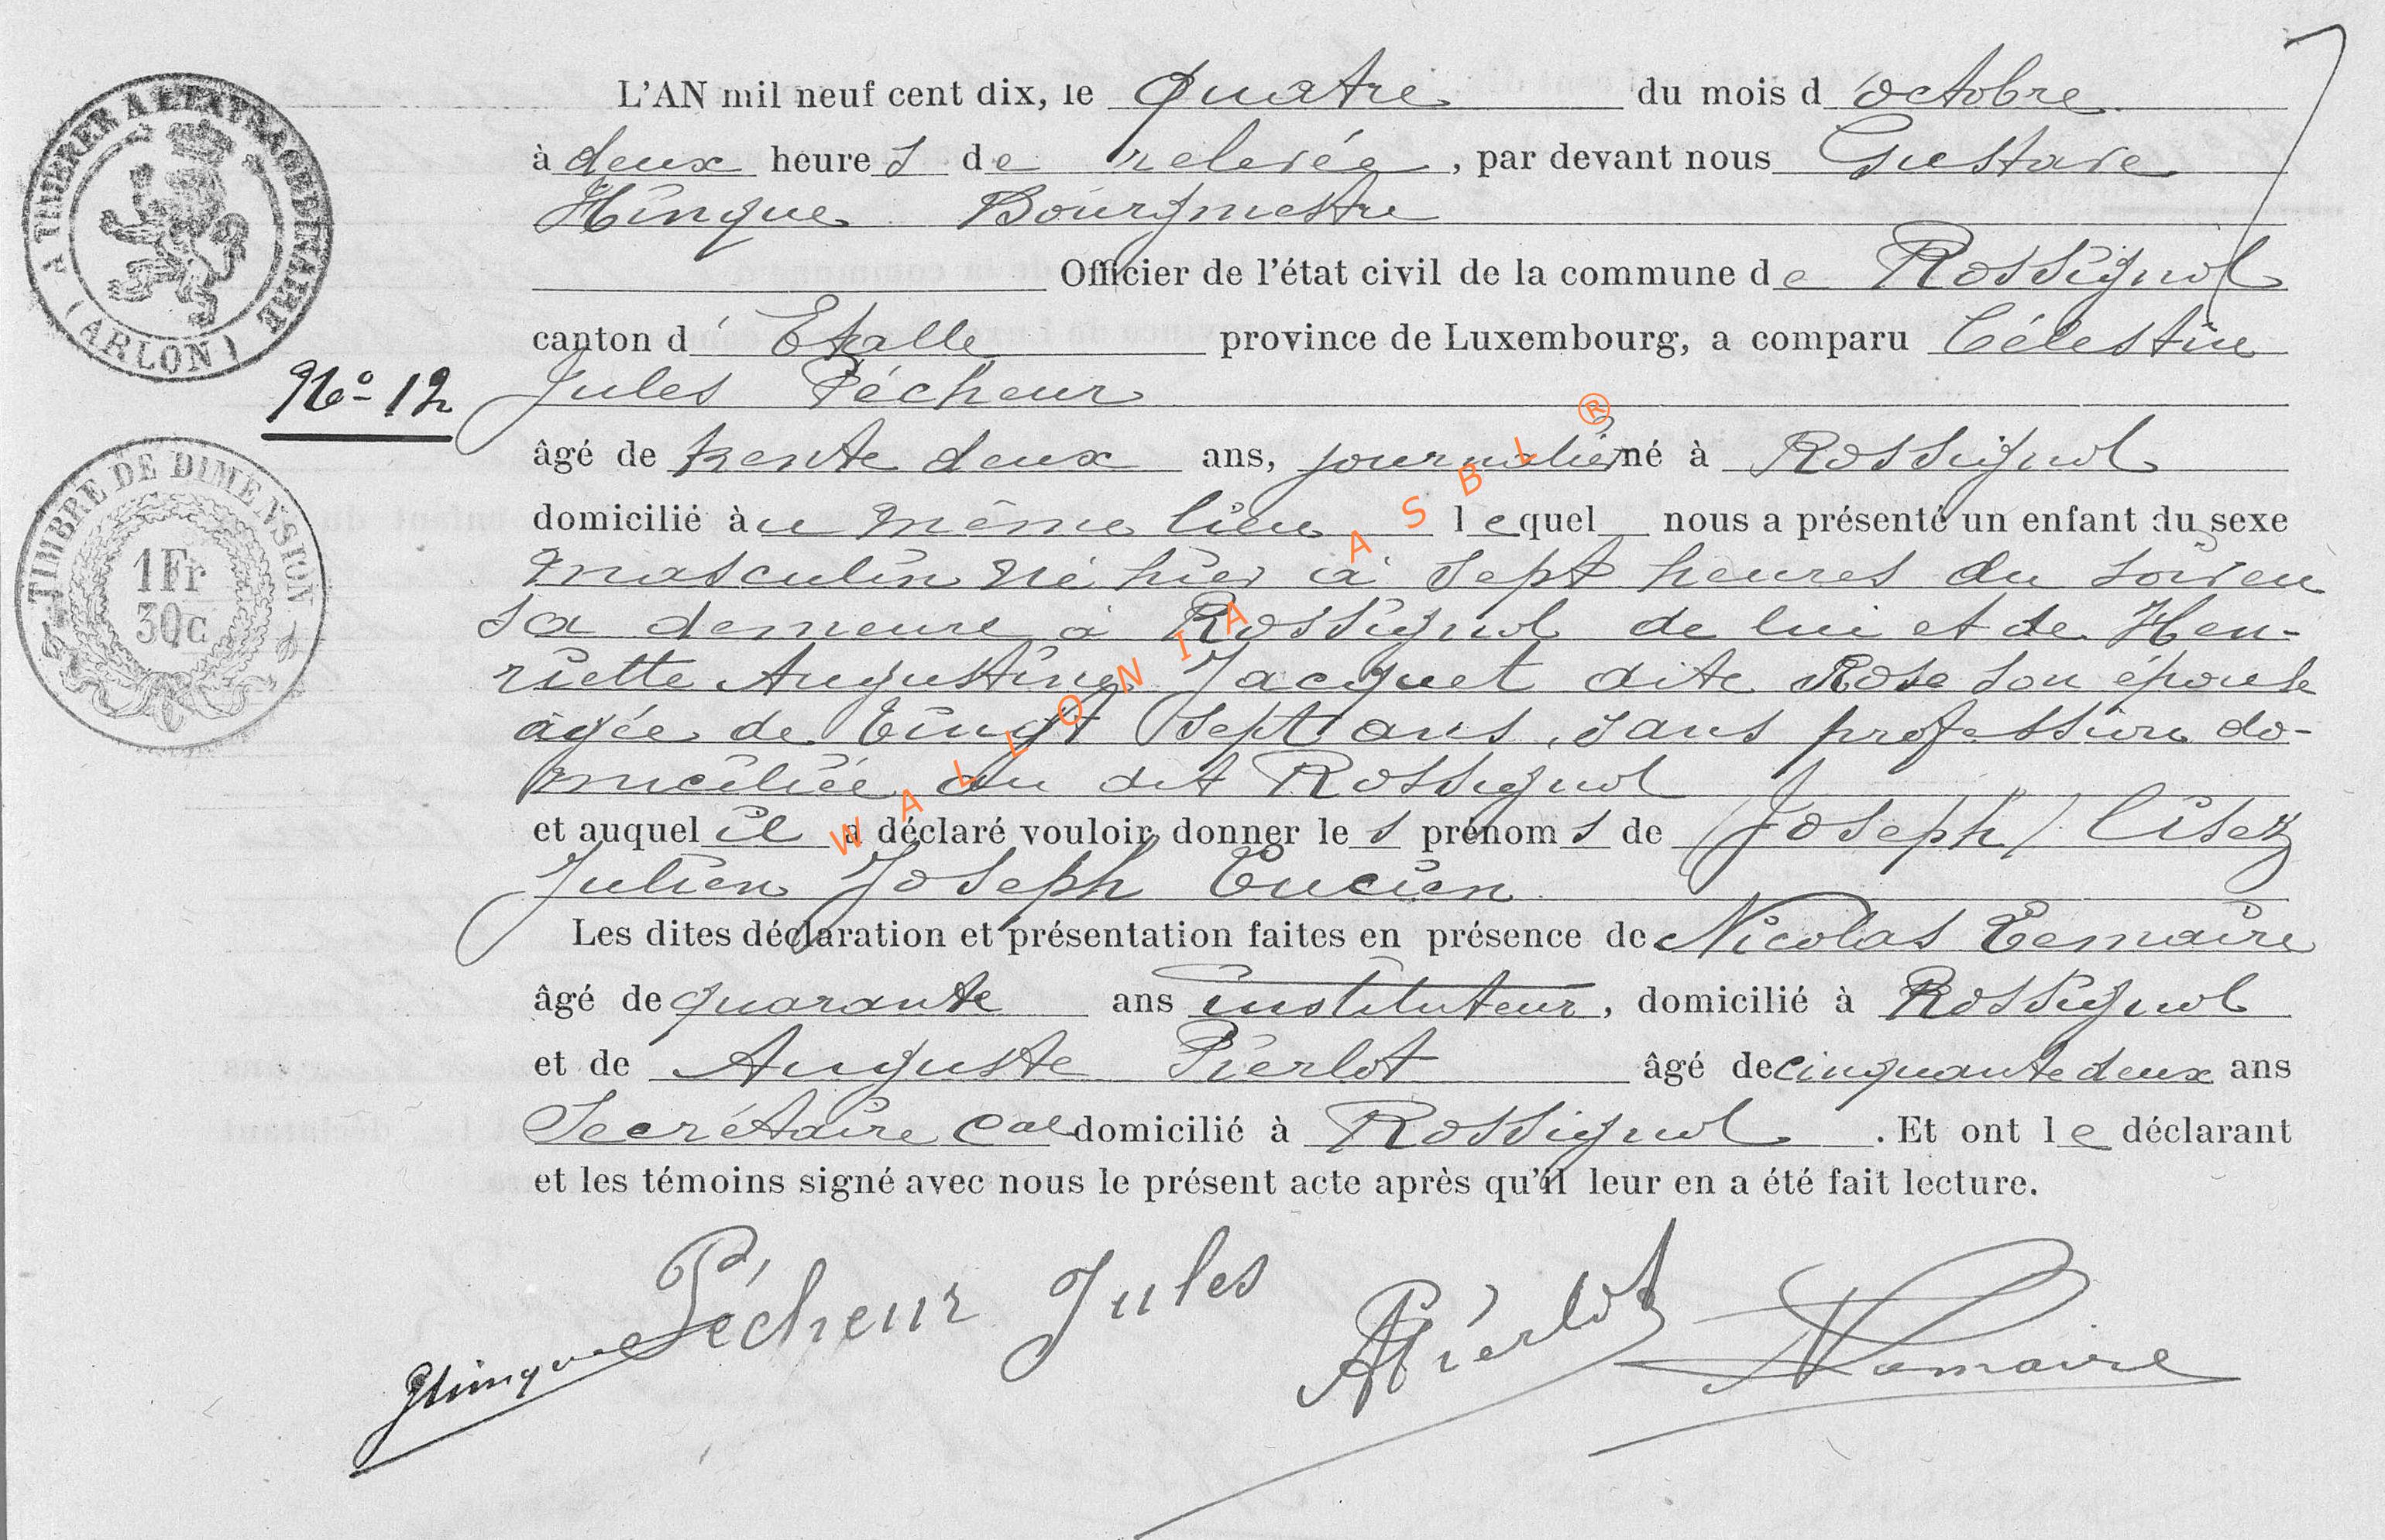 A TIMBRER A L'EXTRAORDINAIRE
(ARLON)
L'AN mil neuf cent dix, le quatre du mois d'octobre
à deux heures de relevée, par devant nous Gustave
Hinque Bourgmestre
Officier de l'état civil de la commune de Rossignol
canton d'Etalle province de Luxembourg, a comparu Célestin
No 12
Jules Pécheur
âgé de trente deux ans, journalier né à Rossignol
domicilié àu même lieu lequel nous a présenté un enfant du sexe
TIMBRE DE DIMENSION
1Fr
30c
masculin né hier à sept heures du soir en
sa demeure à Rossignol de lui et de Hen-
riette Augustine Jacquet dite Rose son épouse
agée de vingt sept ans, sans profession do-
miciliée au dit Rossignol
et auquel il a déclaré vouloir donner les prénoms de (Joseph) lisez
Julien Joseph Lucien
Les dites déclaration et présentation faites en présence de Nicolas Lemaire
âgé de quarante ans instituteur, domicilié à Rossignol
et de Auguste Pierlot âgé de cinquante deux ans
Secrétaire cal domicilié à Rossignol. Et ont le déclarant
et les témoins signé avec nous le présent acte après qu'il leur en a été fait lecture.
Pécheur Jules
GHinque
APierlot
NLemaire
WALLONIA ASBL ®